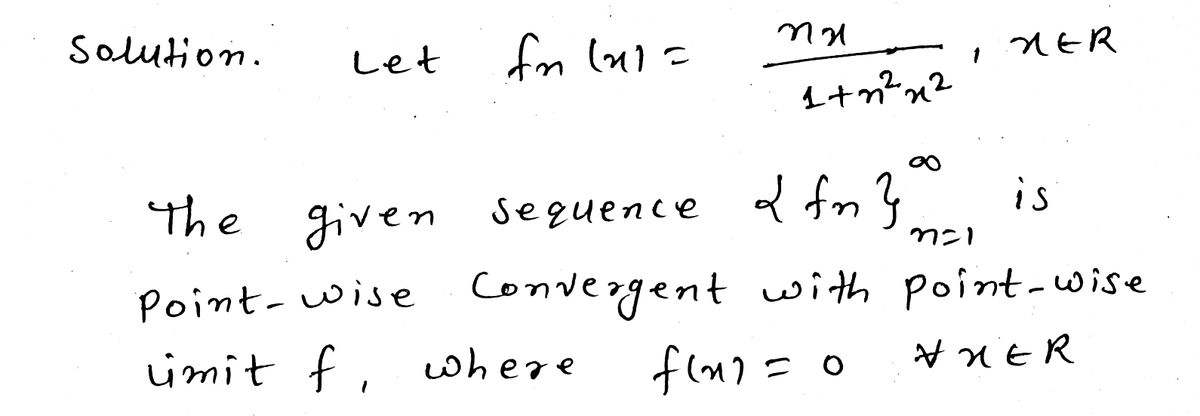 Solution. Let fn (x) = nx / 1+n²x² , x∈R
The given sequence {fn}∞n=1 is
point-wise Convergent with point-wise
limit f, where f(x) = 0 ∀ x∈R